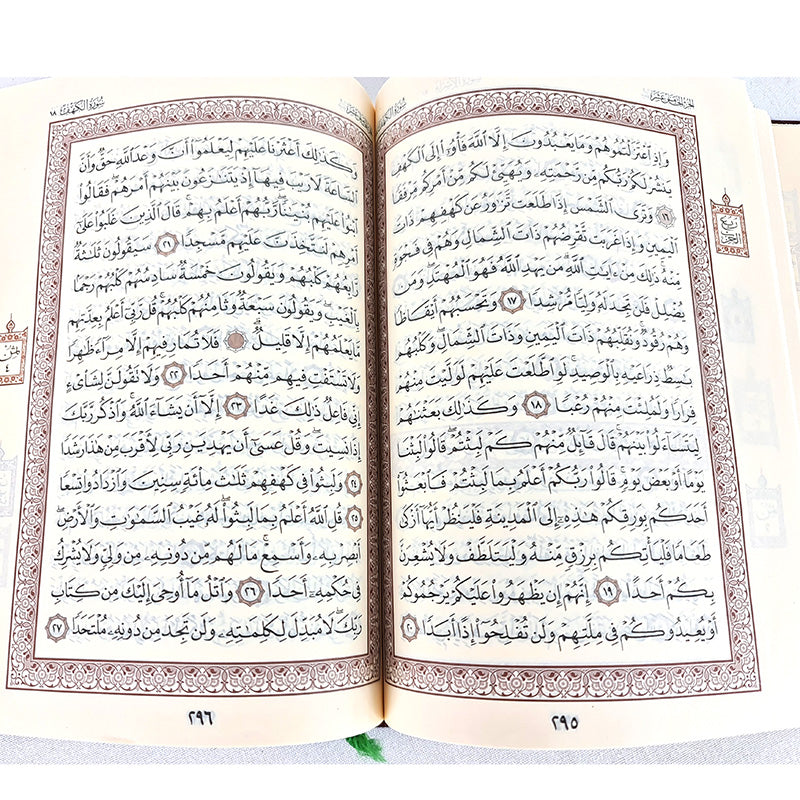 الجزء الخامس عشر
وَإِذِ ٱعْتَزَلْتُمُوهُمْ وَمَا يَعْبُدُونَ إِلَّا ٱللَّهَ فَأْوُۥٓا۟ إِلَى ٱلْكَهْفِ
يَنشُرْ لَكُمْ رَبُّكُم مِّن رَّحْمَتِهِۦ وَيُهَيِّئْ لَكُم مِّنْ أَمْرِكُم مِّرْفَقًا
١٦ وَتَرَى ٱلشَّمْسَ إِذَا طَلَعَت تَّزَٰوَرُ عَن كَهْفِهِمْ ذَاتَ
ٱلْيَمِينِ وَإِذَا غَرَبَت تَّقْرِضُهُمْ ذَاتَ ٱلشِّمَالِ وَهُمْ فِى فَجْوَةٍ
مِّنْهُ ذَٰلِكَ مِنْ ءَايَٰتِ ٱللَّهِ مَن يَهْدِ ٱللَّهُ فَهُوَ ٱلْمُهْتَدِ وَمَن
يُضْلِلْ فَلَن تَجِدَ لَهُۥ وَلِيًّا مُّرْشِدًا ١٧ وَتَحْسَبُهُمْ أَيْقَاظًا
وَهُمْ رُقُودٌ وَنُقَلِّبُهُمْ ذَاتَ ٱلْيَمِينِ وَذَاتَ ٱلشِّمَالِ وَكَلْبُهُم
بَٰسِطٌ ذِرَاعَيْهِ بِٱلْوَصِيدِ لَوِ ٱطَّلَعْتَ عَلَيْهِمْ لَوَلَّيْتَ مِنْهُمْ
فِرَارًا وَلَمُلِئْتَ مِنْهُمْ رُعْبًا ١٨ وَكَذَٰلِكَ بَعَثْنَٰهُمْ
لِيَتَسَآءَلُوا۟ بَيْنَهُمْ قَالَ قَآئِلٌ مِّنْهُمْ كَمْ لَبِثْتُمْ قَالُوا۟ لَبِثْنَا
يَوْمًا أَوْ بَعْضَ يَوْمٍ قَالُوا۟ رَبُّكُمْ أَعْلَمُ بِمَا لَبِثْتُمْ فَٱبْعَثُوٓا۟
أَحَدَكُم بِوَرِقِكُمْ هَٰذِهِۦٓ إِلَى ٱلْمَدِينَةِ فَلْيَنظُرْ أَيُّهَآ أَزْكَىٰ
طَعَامًا فَلْيَأْتِكُم بِرِزْقٍ مِّنْهُ وَلْيَتَلَطَّفْ وَلَا يُشْعِرَنَّ
بِكُمْ أَحَدًا ١٩ إِنَّهُمْ إِن يَظْهَرُوا۟ عَلَيْكُمْ يَرْجُمُوكُمْ
أَوْ يُعِيدُوكُمْ فِى مِلَّتِهِمْ وَلَن تُفْلِحُوٓا۟ إِذًا أَبَدًا ٢٠
ربع الحزب
٢٩٥
سورة الكهف ١٨
وَكَذَٰلِكَ أَعْثَرْنَا عَلَيْهِمْ لِيَعْلَمُوٓا۟ أَنَّ وَعْدَ ٱللَّهِ حَقٌّ وَأَنَّ
ٱلسَّاعَةَ لَا رَيْبَ فِيهَآ إِذْ يَتَنَٰزَعُونَ بَيْنَهُمْ أَمْرَهُمْ فَقَالُوا۟
ٱبْنُوا۟ عَلَيْهِم بُنْيَٰنًا رَّبُّهُمْ أَعْلَمُ بِهِمْ قَالَ ٱلَّذِينَ غَلَبُوا۟ عَلَىٰٓ
أَمْرِهِمْ لَنَتَّخِذَنَّ عَلَيْهِم مَّسْجِدًا ٢١ سَيَقُولُونَ ثَلَٰثَةٌ
رَّابِعُهُمْ كَلْبُهُمْ وَيَقُولُونَ خَمْسَةٌ سَادِسُهُمْ كَلْبُهُمْ رَجْمًۢا
بِٱلْغَيْبِ وَيَقُولُونَ سَبْعَةٌ وَثَامِنُهُمْ كَلْبُهُمْ قُل رَّبِّىٓ أَعْلَمُ بِعِدَّتِهِم
مَّا يَعْلَمُهُمْ إِلَّا قَلِيلٌ فَلَا تُمَارِ فِيهِمْ إِلَّا مِرَآءً ظَٰهِرًا
وَلَا تَسْتَفْتِ فِيهِم مِّنْهُمْ أَحَدًا ٢٢ وَلَا تَقُولَنَّ لِشَا۟ىْءٍ
إِنِّى فَاعِلٌ ذَٰلِكَ غَدًا ٢٣ إِلَّآ أَن يَشَآءَ ٱللَّهُ وَٱذْكُر رَّبَّكَ
إِذَا نَسِيتَ وَقُلْ عَسَىٰٓ أَن يَهْدِيَنِ رَبِّى لِأَقْرَبَ مِنْ هَٰذَا رَشَدًا
٢٤ وَلَبِثُوا۟ فِى كَهْفِهِمْ ثَلَٰثَ مِا۟ئَةٍ سِنِينَ وَٱزْدَادُوا۟ تِسْعًا
٢٥ قُلِ ٱللَّهُ أَعْلَمُ بِمَا لَبِثُوا۟ لَهُۥ غَيْبُ ٱلسَّمَٰوَٰتِ وَٱلْأَرْضِ
أَبْصِرْ بِهِۦ وَأَسْمِعْ مَا لَهُم مِّن دُونِهِۦ مِن وَلِىٍّ وَلَا يُشْرِكُ
فِى حُكْمِهِۦٓ أَحَدًا ٢٦ وَٱتْلُ مَآ أُوحِىَ إِلَيْكَ مِن كِتَابِ
رَبِّكَ لَا مُبَدِّلَ لِكَلِمَٰتِهِۦ وَلَن تَجِدَ مِن دُونِهِۦ مُلْتَحَدًا ٢٧
٢٩٦